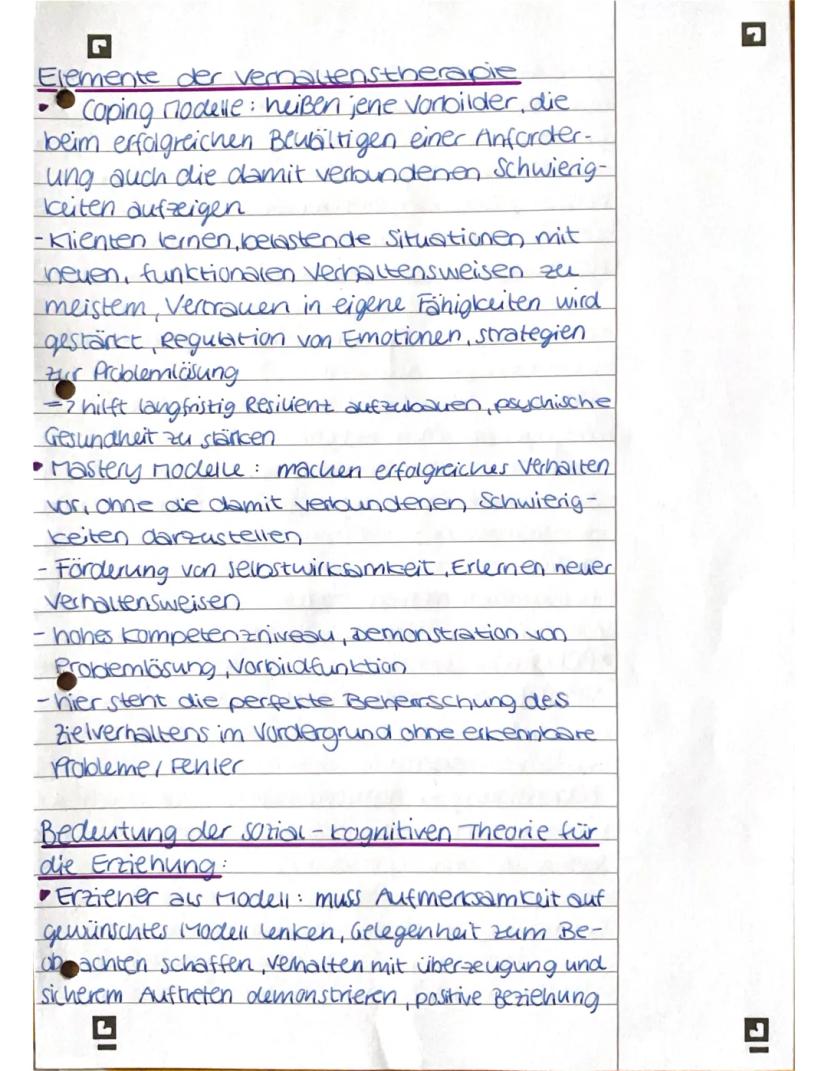 Elemente der Verhaltenstherapie
• Coping Modelle: heißen jene Vorbilder, die
beim erfolgreichen Bewältigen einer Anforder-
ung auch die damit verbundenen Schwierig-
keiten aufzeigen
- Klienten lernen, belastende Situationen mit
neuen, funktionalen Verhaltensweisen zu
meistern, Vertrauen in eigene Fähigkeiten wird
gestärkt, Regulation von Emotionen, strategien
zur Problemlösung
=> hilft langfristig Resilienz aufzubauen, psychische
Gesundheit zu stärken
• Mastery Modelle: machen erfolgreiches Verhalten
vor, ohne die damit verbundenen Schwierig-
keiten darzustellen
- Förderung von Selbstwirksamkeit, Erlernen neuer
Verhaltensweisen
- hohes Kompetenzniveau, Demonstration von
Problemlösung, Vorbildfunktion
- hier steht die perfekte Beherrschung des
Zielverhaltens im Vordergrund ohne erkennbare
Probleme / Fehler
Bedeutung der sozial-kognitiven Theorie für
die Erziehung:
• Erzieher als Modell: muss Aufmerksamkeit auf
gewünschtes Modell lenken, Gelegenheit zum Be-
obachten schaffen, Verhalten mit Überzeugung und
sicherem Auftreten demonstrieren, positive Beziehung